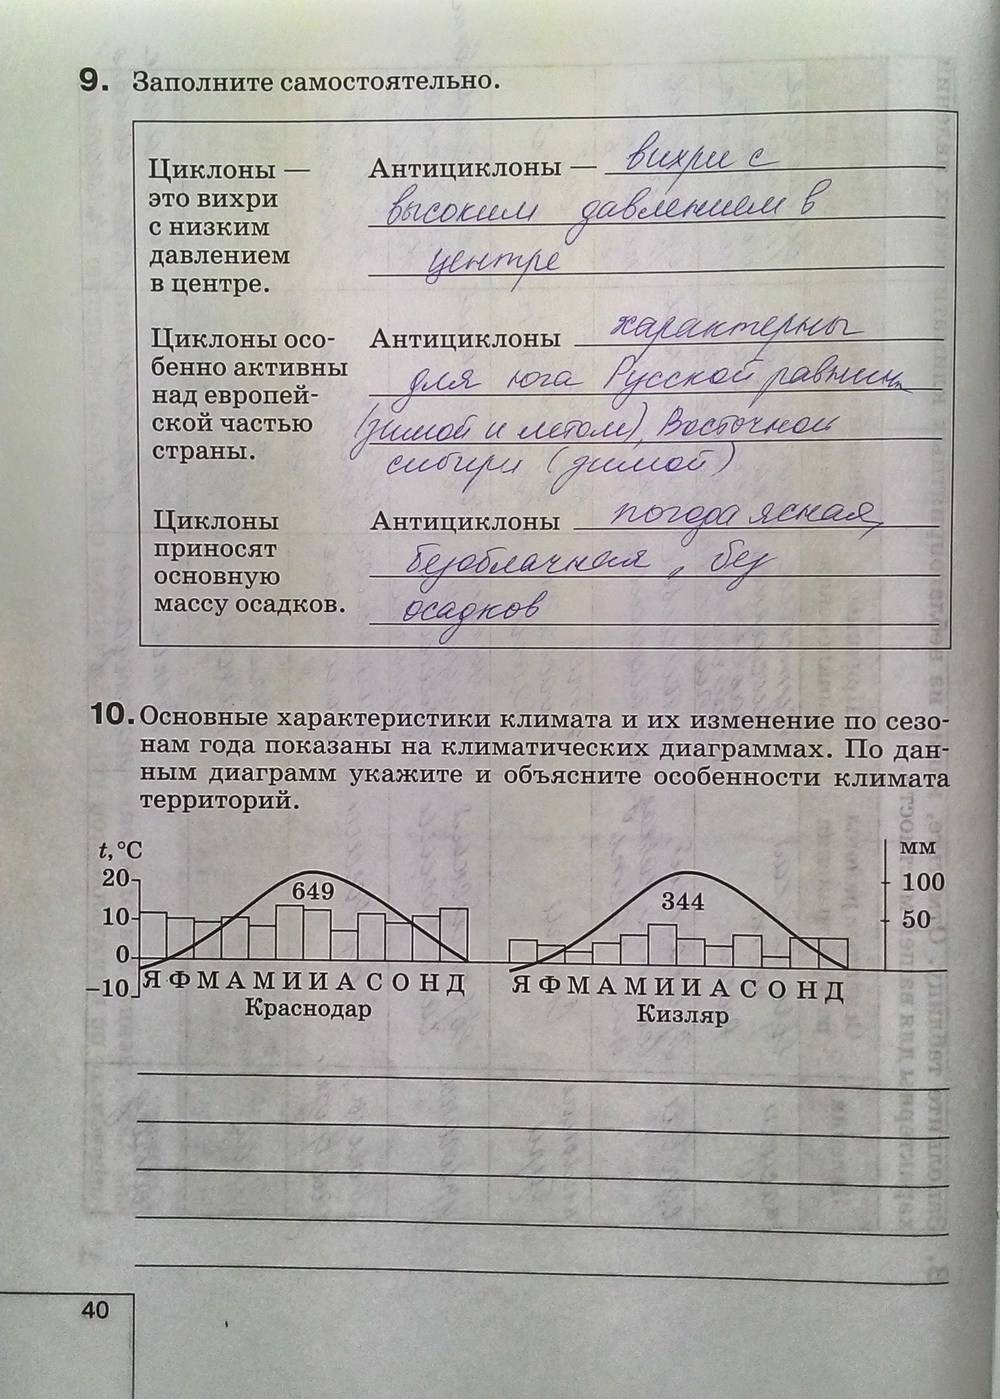 9. Заполните самостоятельно.
Циклоны —
это вихри
с низким
давлением
в центре.
Антициклоны — вихри с
высоким давлением в
центре
Циклоны осо-
бенно активны
над европей-
ской частью
страны.
Антициклоны характерны
для юга Русской равнины
(зимой и летом), Восточной
сибири (зимой)
Циклоны
приносят
основную
массу осадков.
Антициклоны погода ясная,
безоблачная, без
осадков
10. Основные характеристики климата и их изменение по сезо-
нам года показаны на климатических диаграммах. По дан-
ным диаграмм укажите и объясните особенности климата
территорий.
t,°C
20
10
0
–10
649
Я Ф М А М И И А С О Н Д
Краснодар
344
Я Ф М А М И И А С О Н Д
Кизляр
мм
100
50
40